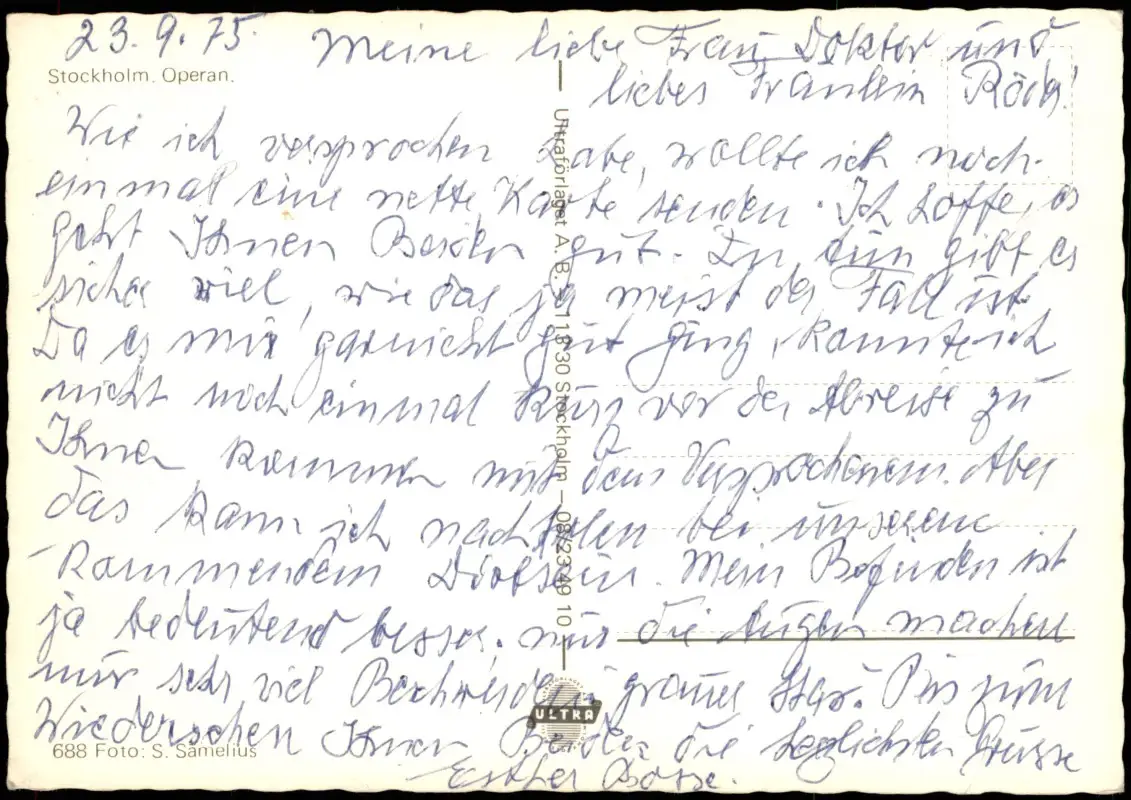 23.9.75. Meine liebe Frau Doktor und
Stockholm. Operan.
liebes Fräulein
Wie ich versprochen habe, wollte ich noch-
einmal eine nette Karte senden. Ich hoffe, es
geht Ihnen Beiden gut. Zu tun gibt es
sicher viel, wie das ja meist der Fall ist.
Da es mir garnicht gut ging, konnte ich
nicht noch einmal kurz vor der Abreise zu
Ihnen kommen mit dem Versprochenem. Aber
das kann ich nachholen bei unserem
kommendem Hiersein. Mein Befinden ist
ja bedeutend besser, nur die Augen machen
mir sehr viel Beschwerden, grauer Star. Bis zum
Wiedersehen Ihnen Beiden die herzlichsten Grüsse
Esther Bosse.
688 Foto: S. Samelius
Ultraförlaget A. B. 113 30 Stockholm – 08/23 49 10
ULTRA